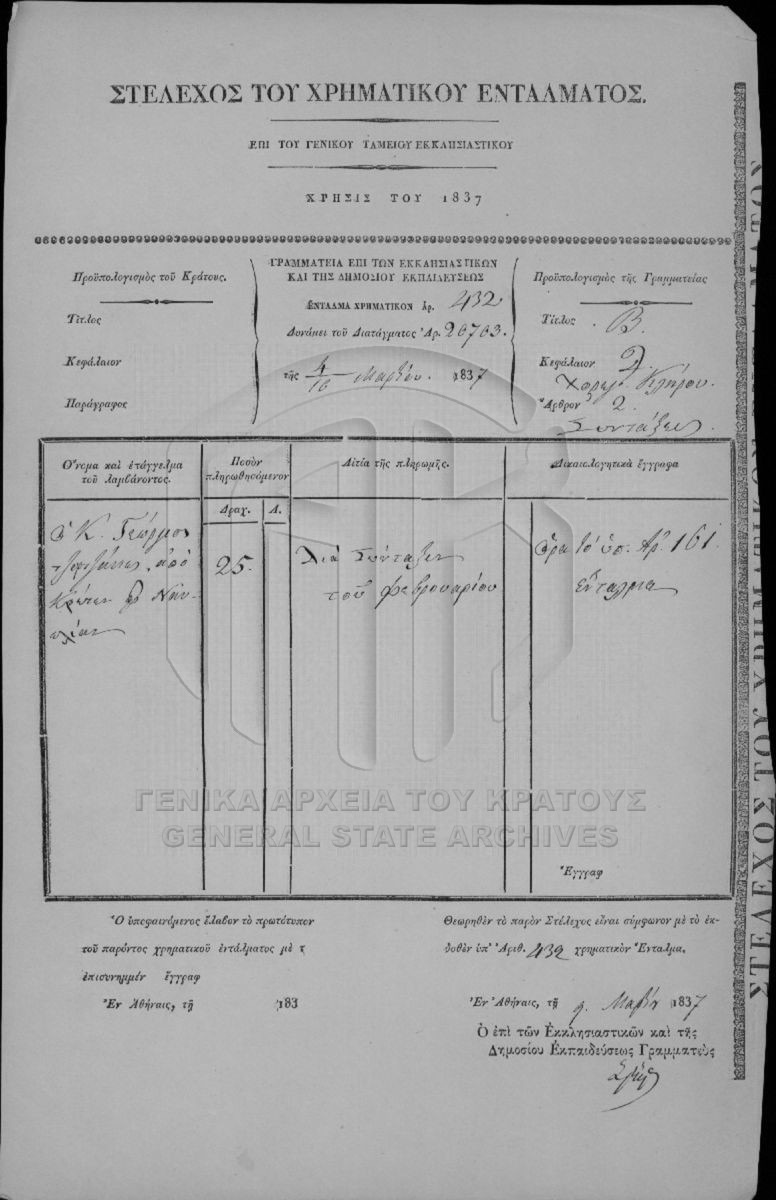 ΣΤΕΛΕΧΟΣ ΤΟΥ ΧΡΗΜΑΤΙΚΟΥ ΕΝΤΑΛΜΑΤΟΣ.
ΕΠΙ ΤΟΥ ΓΕΝΙΚΟΥ ΤΑΜΕΙΟΥ ΕΚΚΛΗΣΙΑΣΤΙΚΟΥ
ΧΡΗΣΙΣ ΤΟΥ 1837
Προϋπολογισμὸς τοῦ Κράτους.
Τίτλος
Κεφάλαιον
Παράγραφος
ΓΡΑΜΜΑΤΕΙΑ ΕΠΙ ΤΩΝ ΕΚΚΛΗΣΙΑΣΤΙΚΩΝ
ΚΑΙ ΤΗΣ ΔΗΜΟΣΙΟΥ ΕΚΠΑΙΔΕΥΣΕΩΣ
ΕΝΤΑΛΜΑ ΧΡΗΜΑΤΙΚΟΝ Ἀρ. 432
Δυνάμει τοῦ Διατάγματος Ἀρ. 20703.
τῆς 4/16 Μαρτίου. 1837
Προϋπολογισμὸς τῆς Γραμματείας
Τίτλος Β.
Κεφάλαιον 2.
Κλήρου.
Ἄρθρον 2.
Συντάξεις.
Ὄνομα καὶ ἐπάγγελμα
τοῦ λαμβάνοντος.
Ποσὸν
πληρωθησόμενον
Δραχ. Λ.
Αἰτία τῆς πληρωμῆς.
Δικαιολογητικὰ ἔγγραφα
ὁ Κ. Γεώργιος
ἀπὸ
25.
Διὰ Σύνταξιν
τοῦ Φεβρουαρίου
Ὅρα τὸ ὑπ. Ἀρ. 161.
ἔνταλμα
Ἔγγραφ
ΓΕΝΙΚΑ ΑΡΧΕΙΑ ΤΟΥ ΚΡΑΤΟΥΣ
GENERAL STATE ARCHIVES
Ὁ ὑπεφαινόμενος ἔλαβον τὸ πρωτότυπον
τοῦ παρόντος χρηματικοῦ ἐντάλματος μὲ τ
ἐπισυνημμέν ἔγγραφ
Ἐν Ἀθήναις, τῇ 183
Θεωρηθὲν τὸ παρὸν Στέλεχος εἶναι σύμφωνον μὲ τὸ ἐκ-
δοθὲν ὑπ' Ἀριθ. 432 χρηματικὸν Ἔνταλμα.
Ἐν Ἀθήναις, τῇ 9. Μαρτίου 1837
Ὁ ἐπὶ τῶν Ἐκκλησιαστικῶν καὶ τῆς
Δημοσίου Ἐκπαιδεύσεως Γραμματεὺς
ΣΤΕΛΕΧΟΣ ΤΟΥ ΧΡΗΜΑΤΙΚΟΥ ΕΝΤΑΛΜΑΤΟΣ